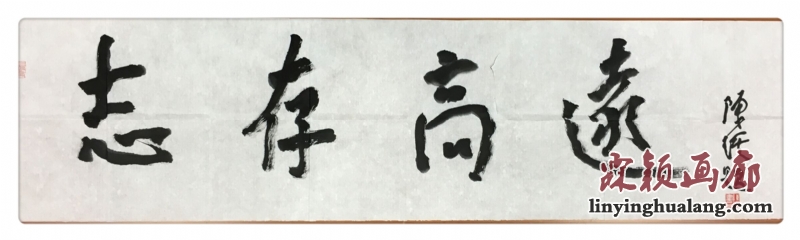 志存高遠
霖颖画廊
linyinghualang.com